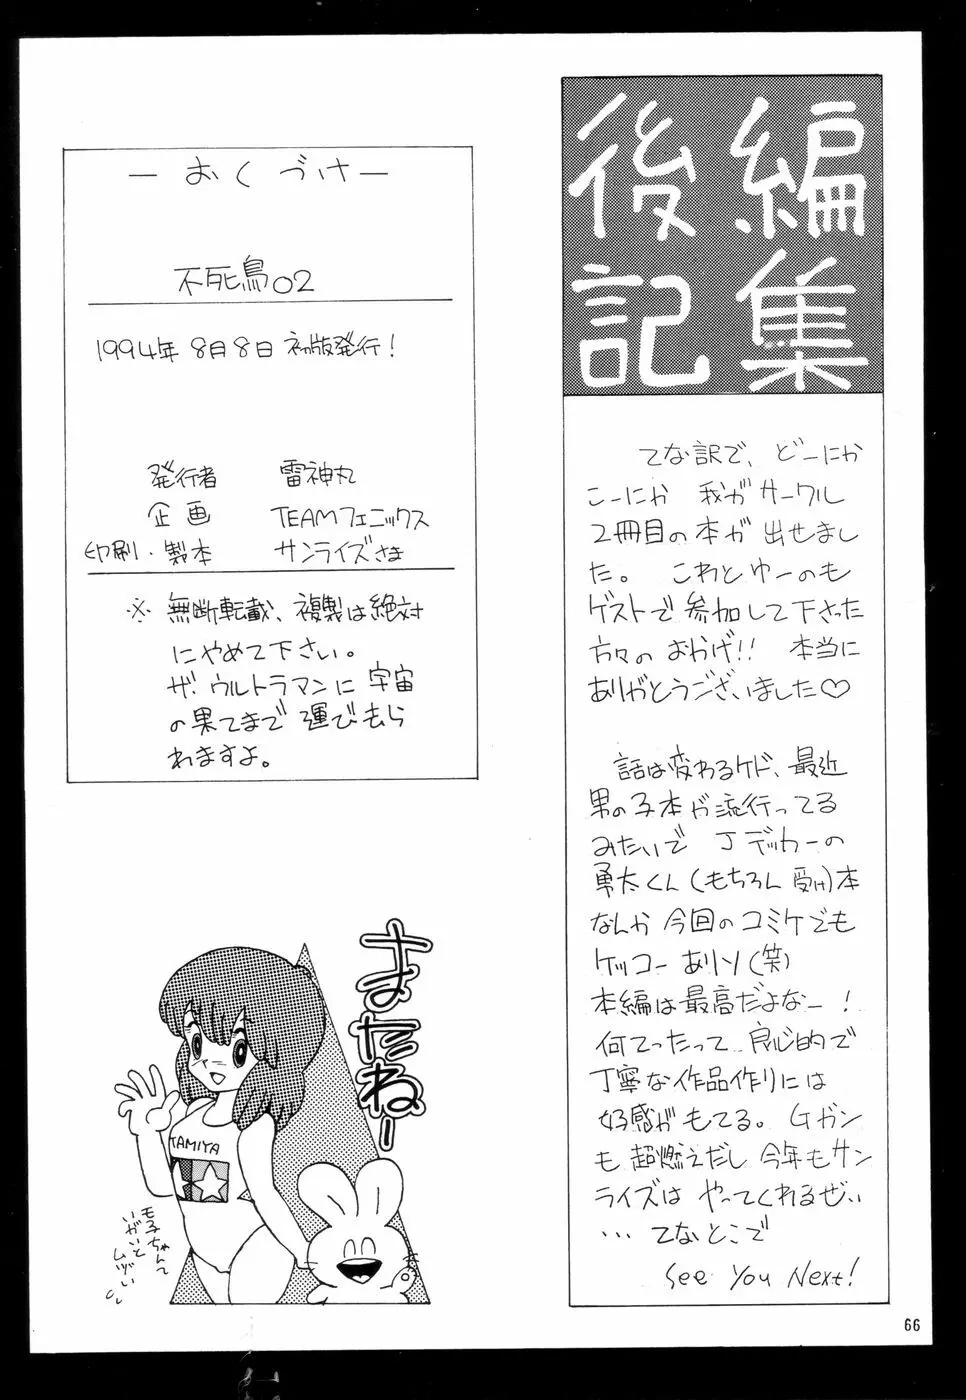 編集
後記
てな訳で、どーにか
こーにか 我がサークル
2冊目の本が出せまし
た。これとゆーのも
ゲストで参加して下さった
方々のおかげ!! 本当に
ありがとうございました♡
話は変わるケド、最近
男の子本が流行ってる
みたいで Jデッカーの
勇太くん(もちろん 受け)本
なんか今回のコミケでも
ケッコーありソ(笑)
本編は最高だよなー!
何てったって 良心的で
丁寧な作品作りには
好感がもてる。Gガン
も超燃えだし 今年もサン
ライズは やってくれるぜい
…てなとこで
See You Next!
ーおくづけー
不死鳥02
1994年8月8日 初版発行!
発行者 雷神丸
企画 TEAMフェニックス
印刷・製本 サンライズさま
※ 無断転載、複製は絶対
にやめて下さい。
ザ・ウルトラマンに宇宙
の果てまで運びもら
れますよ。
まだねー
TAMIYA
モ子ちゃんて
いがいと
ムヅい
66